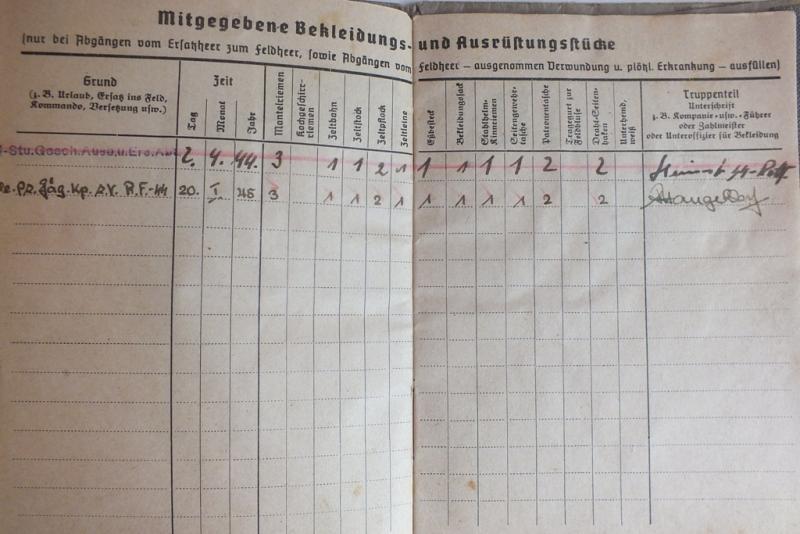 Mitgegebene Bekleidungs- und Ausrüstungsstücke
(nur bei Abgängen vom Ersatzheer zum Feldheer, sowie Abgängen vom Feldheer – ausgenommen Verwundung u. plötzl. Erkrankung – ausfüllen)
Grund
(z. B. Urlaub, Ersatz ins Feld,
Kommando, Versetzung usw.)
Zeit
Tag
Monat
Jahr
Mantelriemen
Kochgeschirr-
riemen
Zeltbahn
Zeltstock
Zeltpflock
Zeltleine
Eßbesteck
Bekleidungssack
Stahlhelm-
Kinnriemen
Seitengewehr-
tasche
Patronentasche
Tragegurt zur
Feldbluse
Draht-Seiten-
haken
Unterhemd,
weiß
Truppenteil
Unterschrift
z. B. Kompanie- usw. -Führer
oder Zahlmeister
oder Unteroffizier für Bekleidung
-Stu.Gesch.Ausb.u.Ers.Abt 2. 4. 44. 3 1 1 2 1 1 1 1 1 2 2
Jäg. Kp. R.F.-SS 20. I 45 3 1 1 2 1 1 1 1 1 2 2